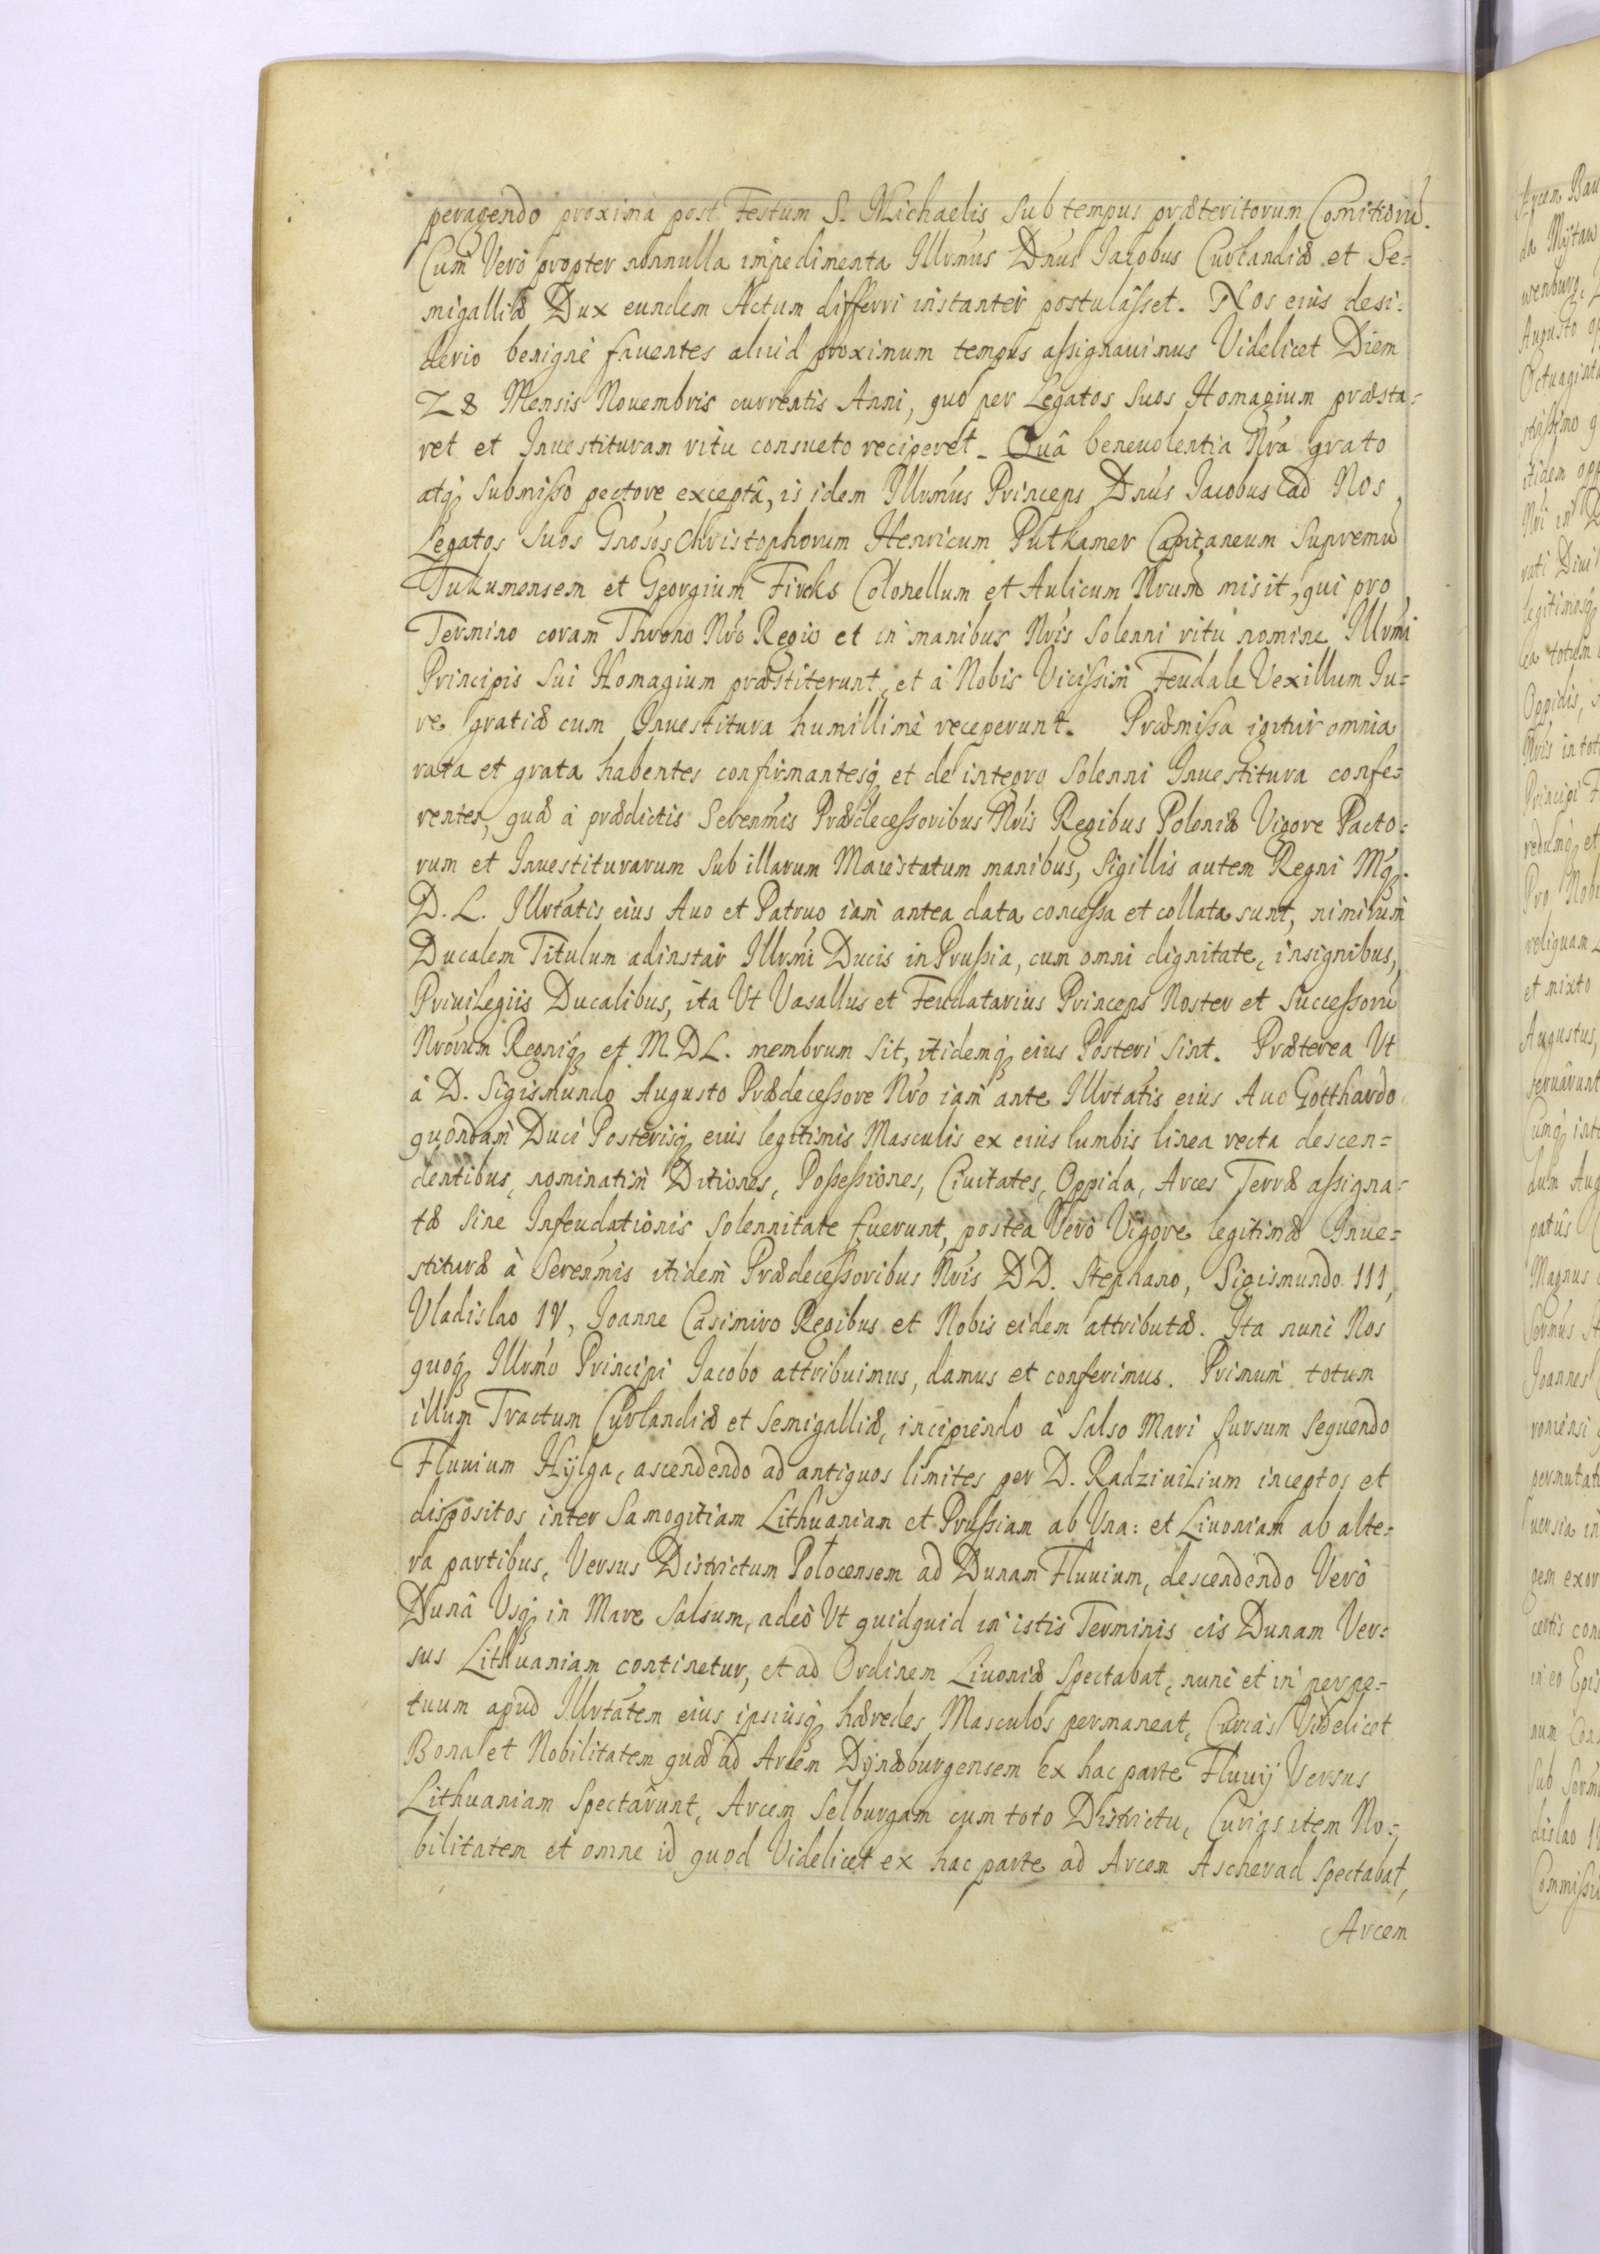 peragendo proxima post Festum S. Michaelis sub tempus præteritorum Comitiorū.
Cum Verò propter nonnulla impedimenta Illrmus Dnus Jacobus Curlandiæ et Se-
migalliæ Dux eundem Actum differri instanter postulasset. Nos eius desi-
derio benignè fauentes aliud proximum tempus assignauimus Videlicet Diem
28 Mensis Nouembris currentis Anni, quo per Legatos suos Homagium præsta-
ret et Inuestituram ritu consueto reciperet. Quâ beneuolentia Nra grato
atq; submisso pectore exceptâ, is idem Illrmus Princeps Dnus Jacobus ad Nos
Legatos suos Gnosos Christophorum Henricum Putkamer Capitaneum Supremū
Tukumensem et Georgium Fircks Colonellum et Aulicum Nrum misit, qui pro
Termino coram Throno Nro Regio et in manibus Nris solenni ritu nomine Illrmi
Principis sui Homagium præstiterunt, et à Nobis Vicissim Feudale Vexillum Ju-
re gratiæ cum Inuestitura humillimè receperunt. Præmissa igitur omnia
rata et grata habentes confirmantesq; et de integro solenni Inuestitura confe-
rentes, quæ à prædictis Serenmis Prædecessoribus Nris Regibus Poloniæ Vigore Pacto-
rum et Inuestiturarum sub illarum Maiestatum manibus, sigillis autem Regni Mq;
D. L. Illrtatis eius Auo et Patruo iam antea data concessa et collata sunt, nimirum
Ducalem Titulum adinstar Illrmi Ducis in Prussia, cum omni dignitate, insignibus,
Priuilegiis Ducalibus, ita Ut Vasallus et Feudatarius Princeps Noster et Successorū
Nrorum Regniq; et M. D L. membrum sit, itidemq; eius Posteri sint. Præterea Ut
à D. Sigismundo Augusto Prædecessore Nro iam ante Illrtatis eius Auo Gotthardo
quondam Duci Posterisq; eius legitimis Masculis ex eius lumbis linea recta descen-
dentibus, nominatim Ditiones, Possessiones, Ciuitates, Oppida, Arces Terræ assigna-
tæ sine Infeudationis solennitate fuerunt, postea Verò Vigore legitimæ Inue-
stituræ à Serenmis itidem Prædecessoribus Nris DD. Stephano, Sigismundo III,
Vladislao IV, Joanne Casimiro Regibus et Nobis eidem attributæ. Ita nunc Nos
quoq; Illrmo Principi Jacobo attribuimus, damus et conferimus. Primum totum
illum Tractum Curlandiæ et Semigalliæ, incipiendo à salso Mari sursum sequendo
Fluuium Hÿlga, ascendendo ad antiquos limites per D. Radziuilium inceptos et
dispositos inter Samogitiam Lithuaniam et Prussiam ab Una: et Liuoniam ab alte-
ra partibus, Versus Districtum Polocensem ad Dunam Fluuium, descendendo Verò
Dunâ Usq; in Mare Salsum, adeò Ut quidquid in istis Terminis cis Dunam Ver-
sus Lithuaniam continetur, et ad Ordinem Liuoniæ spectabat, nunc et in perpe-
tuum apud Illrtatem eius ipsiusq; hæredes Masculos permaneat, Curias Videlicet
Bona et Nobilitatem quæ ad Arcem Dynæburgensem ex hac parte Fluuij Versus
Lithuaniam Spectârunt, Arcem Selburgam cum toto Districtu, Curias item No-
bilitatem et omne id quod Videlicet ex hac parte ad Arcem Ascherad spectabat,
Arcem